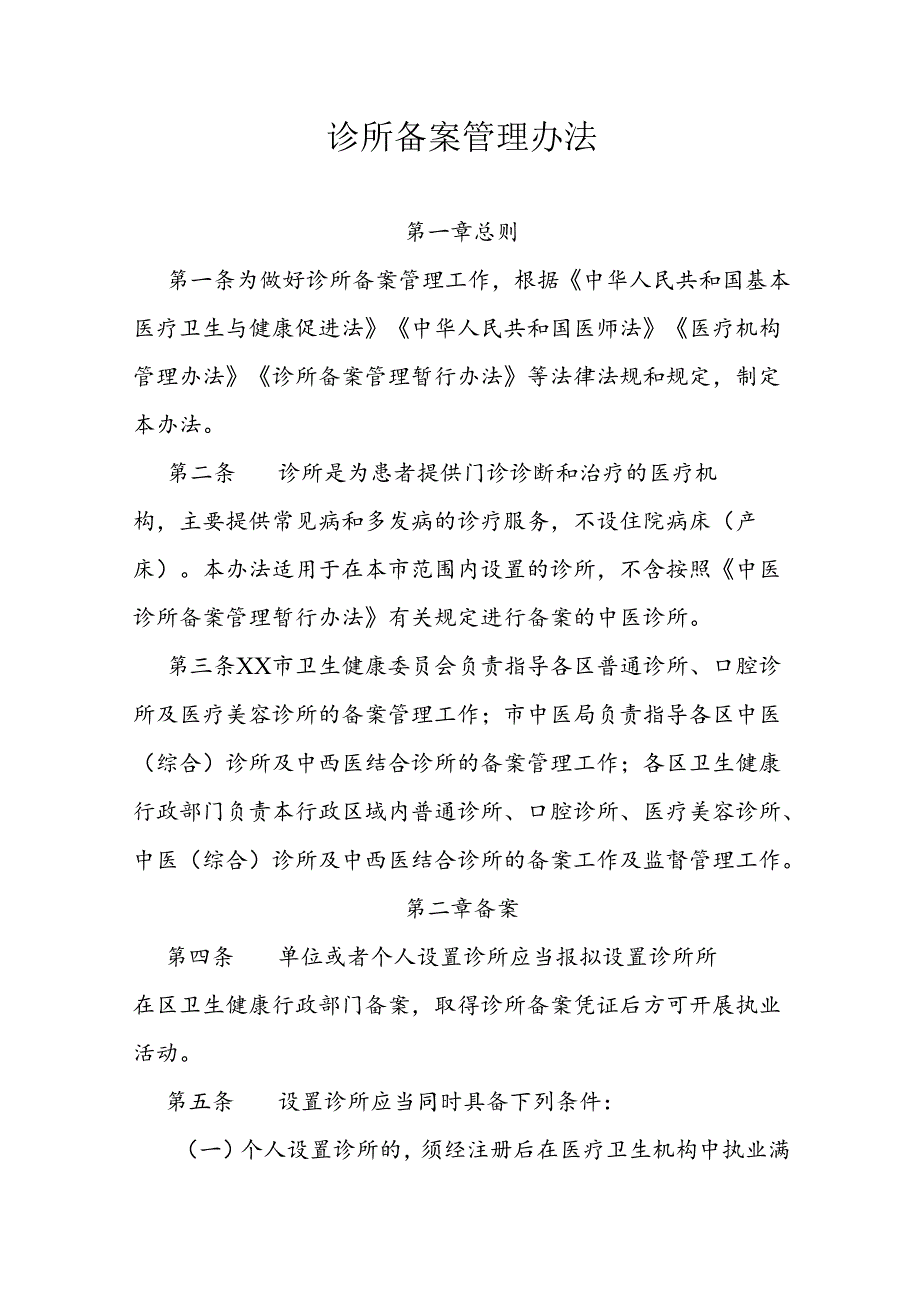 诊所备案管理办法
第一章总则
第一条为做好诊所备案管理工作，根据《中华人民共和国基本
医疗卫生与健康促进法》《中华人民共和国医师法》《医疗机构
管理办法》《诊所备案管理暂行办法》等法律法规和规定，制定
本办法。
第二条 诊所是为患者提供门诊诊断和治疗的医疗机
构，主要提供常见病和多发病的诊疗服务，不设住院病床（产
床）。本办法适用于在本市范围内设置的诊所，不含按照《中医
诊所备案管理暂行办法》有关规定进行备案的中医诊所。
第三条XX市卫生健康委员会负责指导各区普通诊所、口腔诊
所及医疗美容诊所的备案管理工作；市中医局负责指导各区中医
（综合）诊所及中西医结合诊所的备案管理工作；各区卫生健康
行政部门负责本行政区域内普通诊所、口腔诊所、医疗美容诊所、
中医（综合）诊所及中西医结合诊所的备案工作及监督管理工作。
第二章备案
第四条 单位或者个人设置诊所应当报拟设置诊所所
在区卫生健康行政部门备案，取得诊所备案凭证后方可开展执业
活动。
第五条 设置诊所应当同时具备下列条件：
（一）个人设置诊所的，须经注册后在医疗卫生机构中执业满